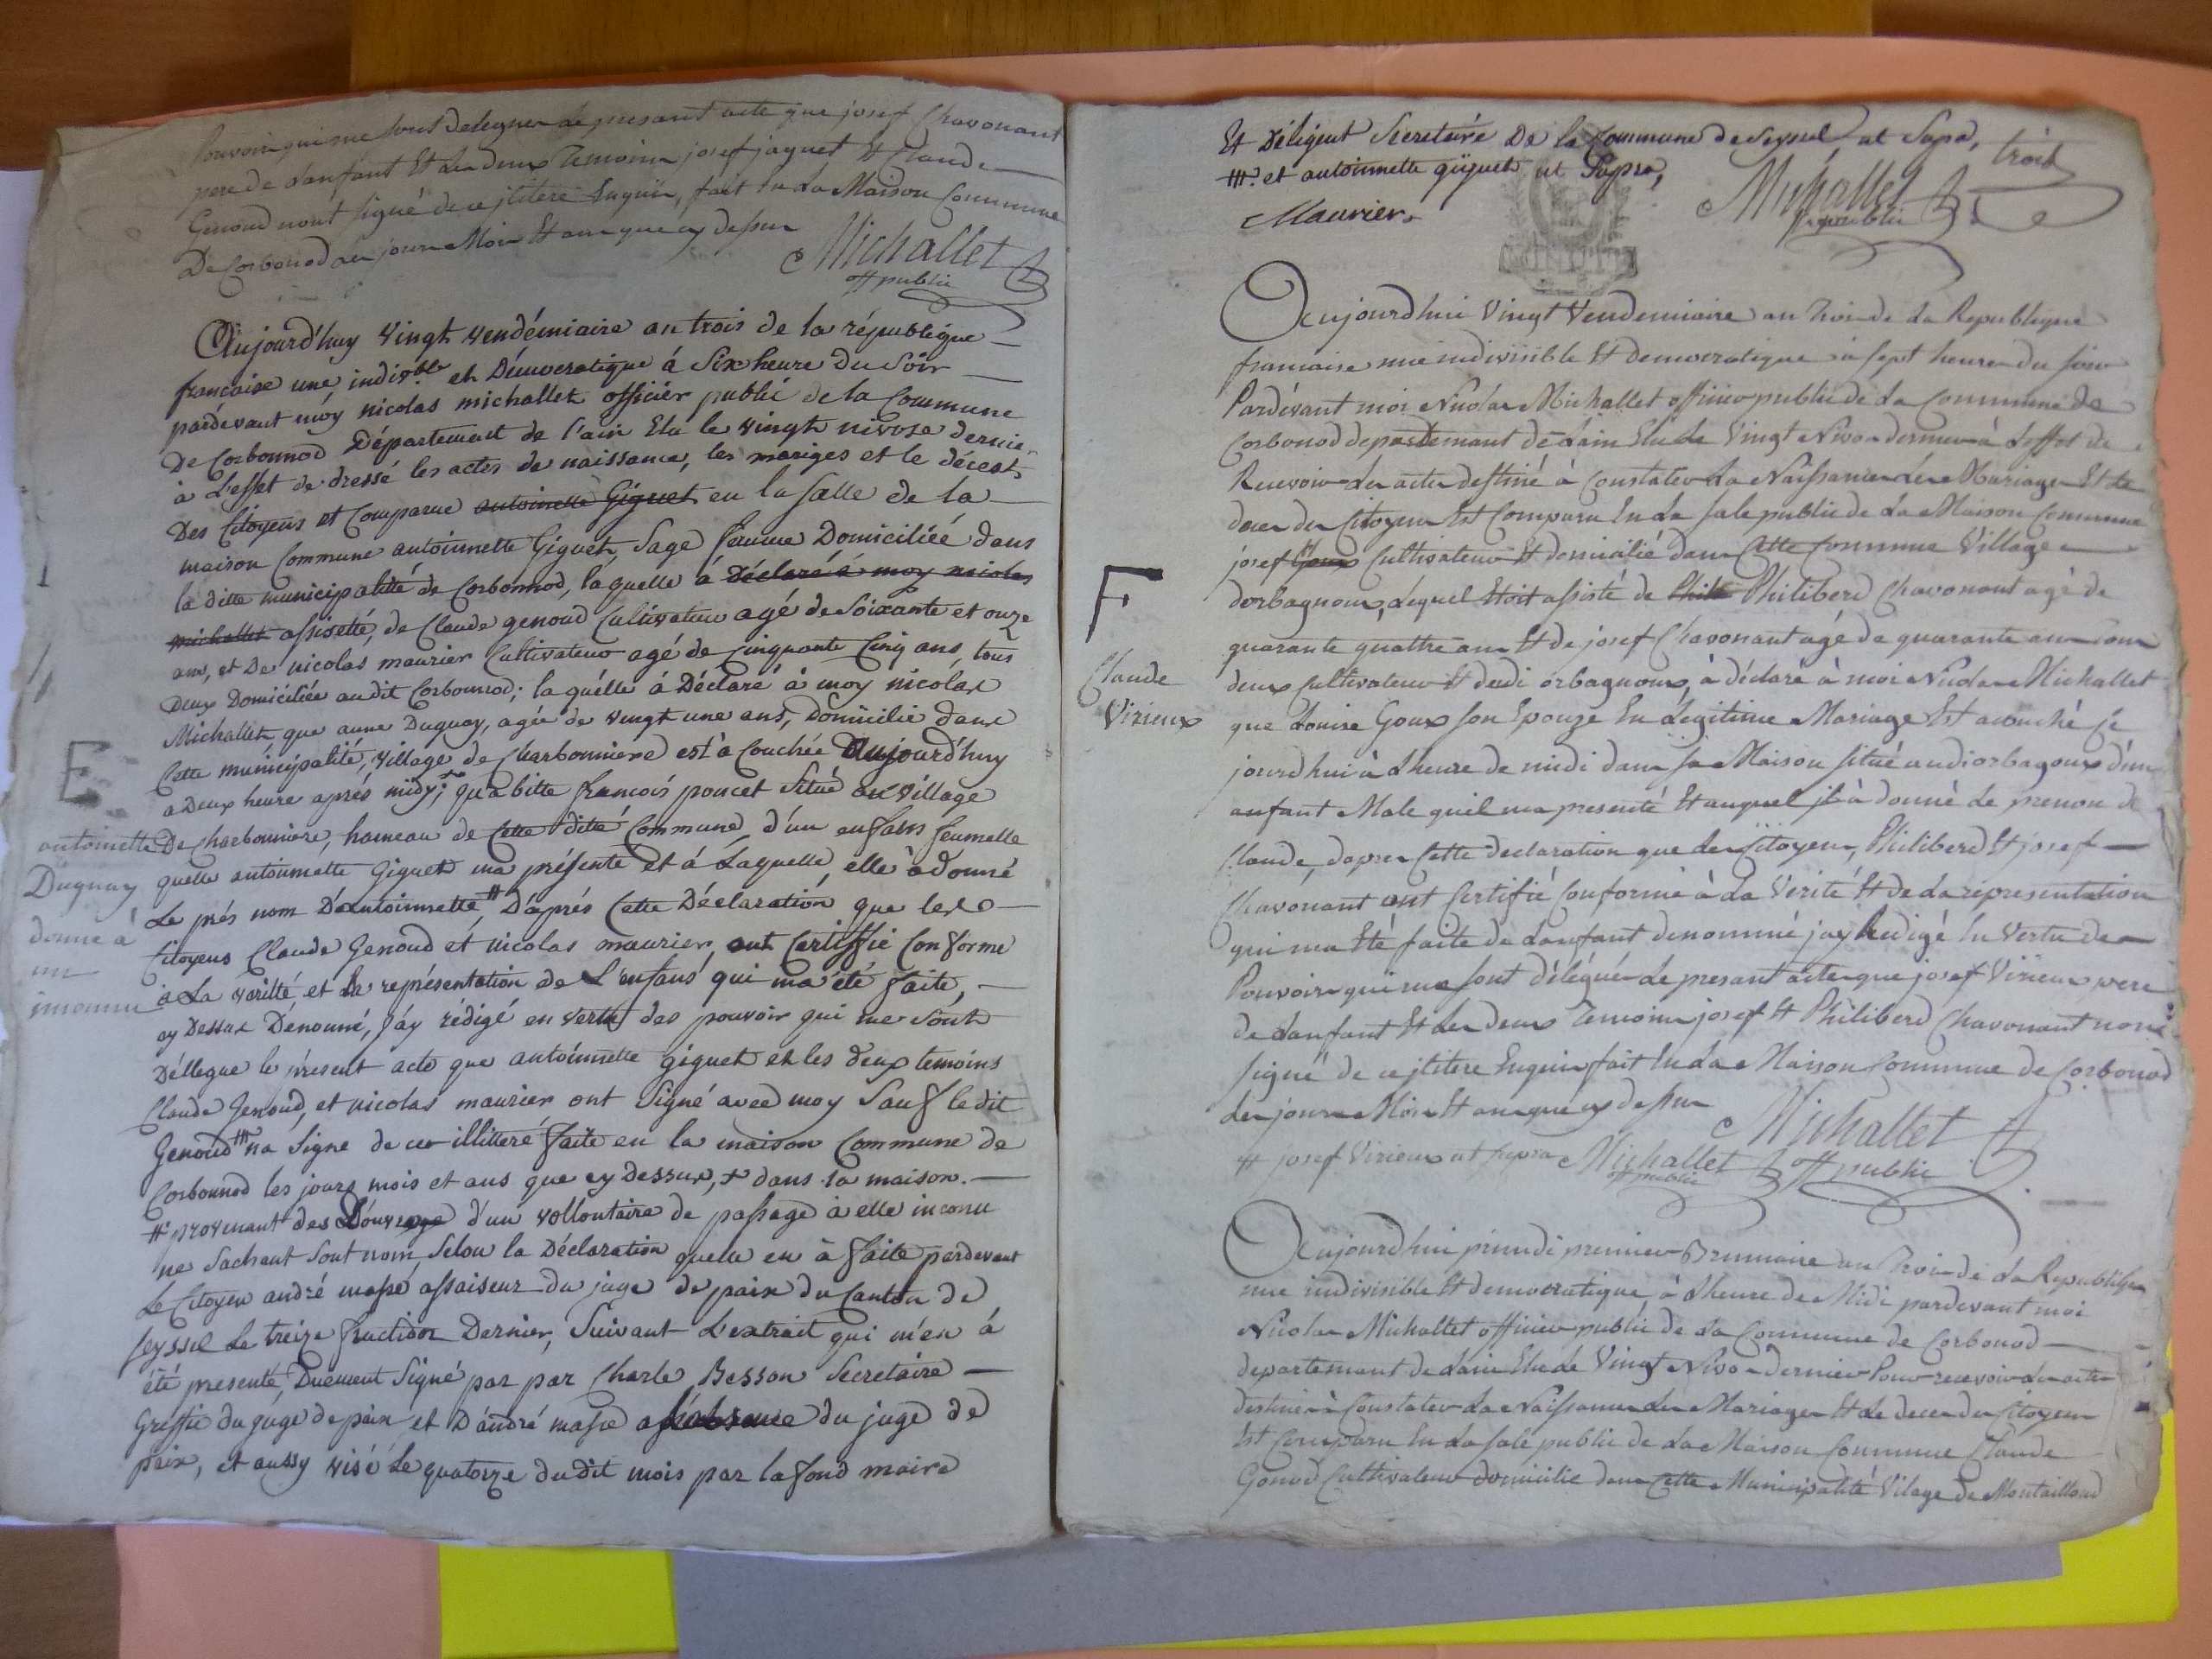 Pouvoir qui me sont deleguer le presant acte que josef Chavonant
pere de lanfant Et les deux Temoins josef jaquet Et Claude
Genoud nont signé de ce jlitere Enquis, fait En La Maison Commune
De Corbonod les jours Mois Et an que cy dessus
Michallet
off public
Aujourd'huy vingt vendémiaire an trois de la république
francaise une indivble et Démocratique á Six heure du Soir
pardevant moy nicolas michallet officiér public de la Commune
De Corbonnod Département de l'ain Elu le vingt nivose dernier
à L'effet de dressé les actes de naissance, les mariges et le décest
Des Citoyens et Comparue antoinette Giguet en la salle de la
maison Commune antoinnette Giguet, Sage femme Domiciliéé dans
la ditte municipalité de Corbonnod, laquelle à Déclaré á moy nicolas
michallet assisetté, de Claude genoud Cultivateur agé de Soixante et onze
ans, et De nicolas maurier Cultivateur agé de Cinquante Cinq ans, tous
Deux Domiciliée audit Corbonnod; la quélle á Déclaré à moy nicolas
Michallet que anne Duguay, agée de vingt une ans, Domicilié dans
Cette municipalité, village de Charbonniere est à Couchée Aujourd'huy
a Deux heure aprés midy; + qu'a bitte francois poncet Situé au village
De Charbonniere, hameau de Cette ditte Commune, d'un enfans feumelle
quelle antoinnette Giguet ma présenté et á Laquelle, elle à donné
Le prés nom D'antoinnette # D'aprés Cette Déclaration que les
Citoyens Claude Genoud et nicolas maurier, ont Certiffié Conforme
à La varitté, et la représentation de L'enfans qui ma été faite,
cy Dessus Dénommé, J'áy rédigé en vertu des pouvoir qui me sont
Déllegue le présent acte que antoinnette giguet et les deux temoins
Claude Genoud, et nicolas maurier ont Signé avec moy Sauf ledit
Genoud ## na Signe de ce illitteré faite en la maison Commune de
Corbonnod les jours mois et ans que cy Dessus, + dans la maison.
# provenant des L'ouvrage d'un vollontaire de passage à elle inconu
ne Sachant Sont nom, Selon la Déclaration quelle en à faite pardevant
Le Citoyen andré masse assaiseur du juge de paix du Canton de
Seyssel Le treize fructidor Dernier, Suivant L'extrait qui m'en á
été presenté, Duement Signé par par Charle Besson Secretaire
Greffié du juge de paix et D'andré masse du juge de
paix, et aussy visé Le quatorze dudit mois par lafond maire
E
antoinette
Duguay
donné à
un
inconnu
Et Déligent Secretaire De la Commune de Seyssel, ut Supa,
##. et antoinnette giguet ut Supra,
trois
Maurier.
Michallet
off public
Aujourdhui Vingt Vendemiaire an Trois de La Republique
francaise une indivisible Et democratique à sept heure du soir
Pardévant moi Nicolas Michallet officier public de La Commune de
Corbonod departemant de Lain Elu Le Vingt Nivos dernier à Leffet de
Recevoir Les actes destiné à Constater La Naissance Les Mariages Et Le
deces des Citoyens Est Comparu En La sale public de La Maison Commune
josef Goux Cultivateur Et domicilié dans Cette Commune Village
dorbagnoux, Lequel Etoit assisté de Phili Philiberd Chavonant agé de
quarante quattre ans Et de josef Chavonant agé de quarante ans tous
deux Cultivateur Et dudi orbagnoux, à déclaré à moi Nicolas Michallet
que Louise Goux son Epouze En Légitime Mariage Est acouché ce
jourdhui à Lheure de midi dans sa Maison situé audi orbagoux d'un
anfant Male quil ma presenté Et auquel jl à donné Le prenom de
Claude, dapres Cette declaration que Les Citoyens, Philiberd Et josef
Chavonant ont Certifié Conforme à La Vérité Et de La representation
qui ma Eté faite de Lanfant denommé jay Redigé En Vertu des
Pouvoir qui me sont délégués Le presant acte que josef Virieux pere
de Lanfant Et Les deux Temoins josef Et Philiberd Chavonant nont
signé de ce jlitere Enquis fait En La Maison Commune de Corbonod
Les jours Mois Et an que cy dessus
# josef Virieux ut supra Michallet
off public
Michallet
off public
F
Claude
Virieux
Aujourdhui primdi premier Brumaire an Trois de La Republique
une indivisible Et democratique à Lheure de Midi pardevant moi
Nicolas Michallet officier public de La Commune de Corbonod
departement de Lain Elu Le Vingt Nivos dernier Pour recevoir Les actes
destiné à Constater La Naissance Les Mariages Et Le deces des Citoyens
Est Comparu En La sale public de La Maison Commune Claude
Gonod Cultivateur domicilié dans Cette Municipalité Vilage de Montailloud